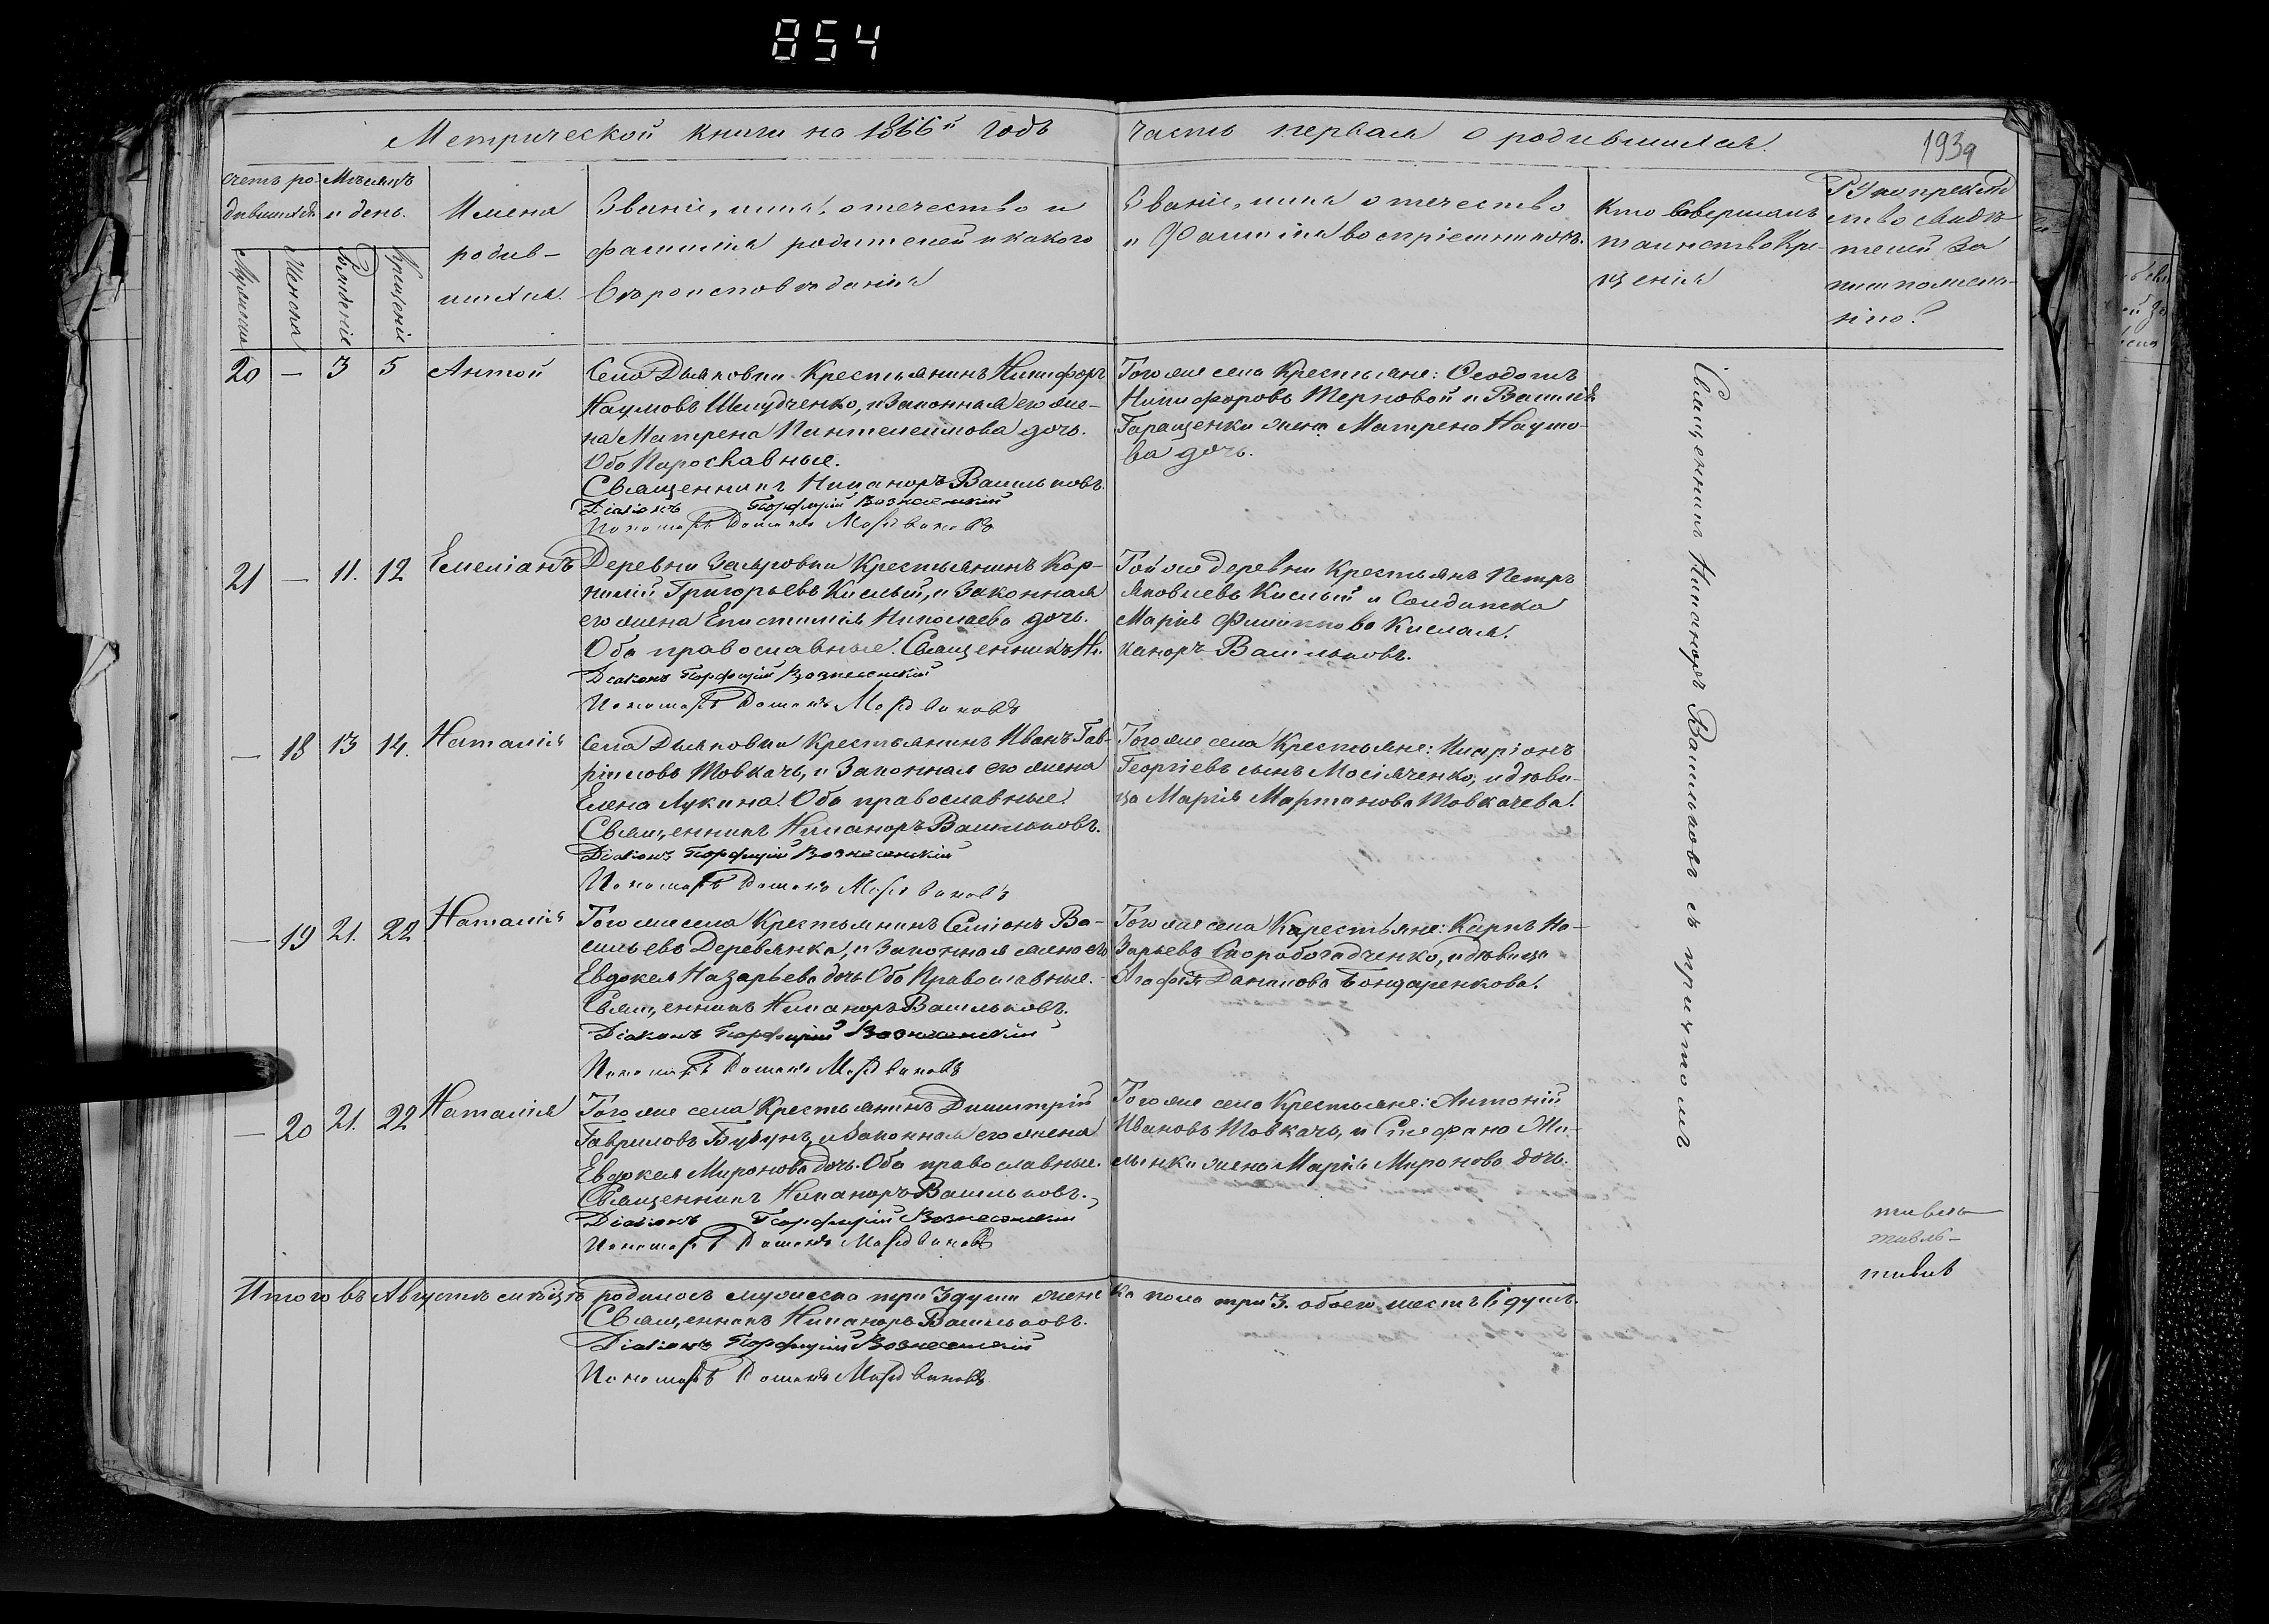 854
Метрической книги на 1866й годъ
часть первая о родившихся.
193
счетъ ро-
дившихся
Мужеска
Женска
Мѣсяцъ
и день.
Рожденія
Крещенія
Имена
родив-
шихся.
Званіе, имя, отечество и
фамилія родителей и какого
вѣроисповѣданія
Званіе, имя отечество
и фамилія воспріемниковъ.
Кто совершалъ
таинство Кре-
щенія
20 — 3 5 Антоній
Села Дьяковки Крестьянинъ Никифоръ
Наумовъ Шелудченко, и Законная его же-
на Матрена Пантелеимова дочь.
Оба Парославные.
Священникъ Никаноръ Васильковъ.
Діаконъ Порфирій Вознесенскій
Пономарь
Того же села Крестьяне: Ѳеодотъ
Никифоровъ Терновой и Василія
Геращенки жена Матрена Наумо-
ва дочь.
21 — 11. 12 Емеліанъ
Деревни Крестьянинъ Кор-
нилій Григорьевъ Кислый, и Законная
его жена Епистимія Николаева дочь.
Оба православные. Священникъ Ни-
Діаконъ Порфирій Вознесенскій
Пономарь
Той же деревни Крестьянъ Петръ
Яковлевъ Кислый и Солдатка
Марія Филиппова Кислая.
каноръ Васильковъ.
— 18 13 14. Наталія
Села Дьяковки Крестьянинъ Иванъ Гав-
ріиловъ Товкачъ, и Законная его жена
Елена Лукина. Оба православные.
Священникъ Никаноръ Васильковъ.
Діаконъ Порфирій Вознесенскій
Пономарь
Того же села Крестьяне: Иларіонъ
Георгіевъ сынъ Мосіяченко, и дѣви-
ца Марія Мартинова Товкачева.
— 19 21. 22 Наталія
Того же села Крестьянинъ Семіонъ Ва-
сильевъ Деревянка, и Законная жена его
Евдокея Назарьева дочь Оба Православные.
Священникъ Никаноръ Васильковъ.
Діаконъ Порфирій Вознесенскій
Пономарь
Того же села Карестьяне: Карпъ На-
зарьевъ Скоробогадченко, и дѣвица
Агафія Данилова Бондаренкова.
— 20 21. 22 Наталія
Того же села Крестьянинъ Димитрій
Гавриловъ Бубунъ, и Законная его жена
Евдокея Миронова дочь. Оба православные.
Священникъ Никаноръ Васильковъ.
Діаконъ Порфирій Вознесенскій
Пономарь
Того же села Крестьяне: Антоній
Ивановъ Товкачъ, и Стефана
жена Марія Миронова дочь.
Священникъ Никаноръ Васильковъ съ причтомъ
Итого въ Августѣ мѣсяцѣ родилось мужеска три 3 души женс
ка пола три 3. обоего шесть 6 душъ.
Священникъ Никаноръ Васильковъ.
Діаконъ Порфирій Вознесенскій
Пономарь